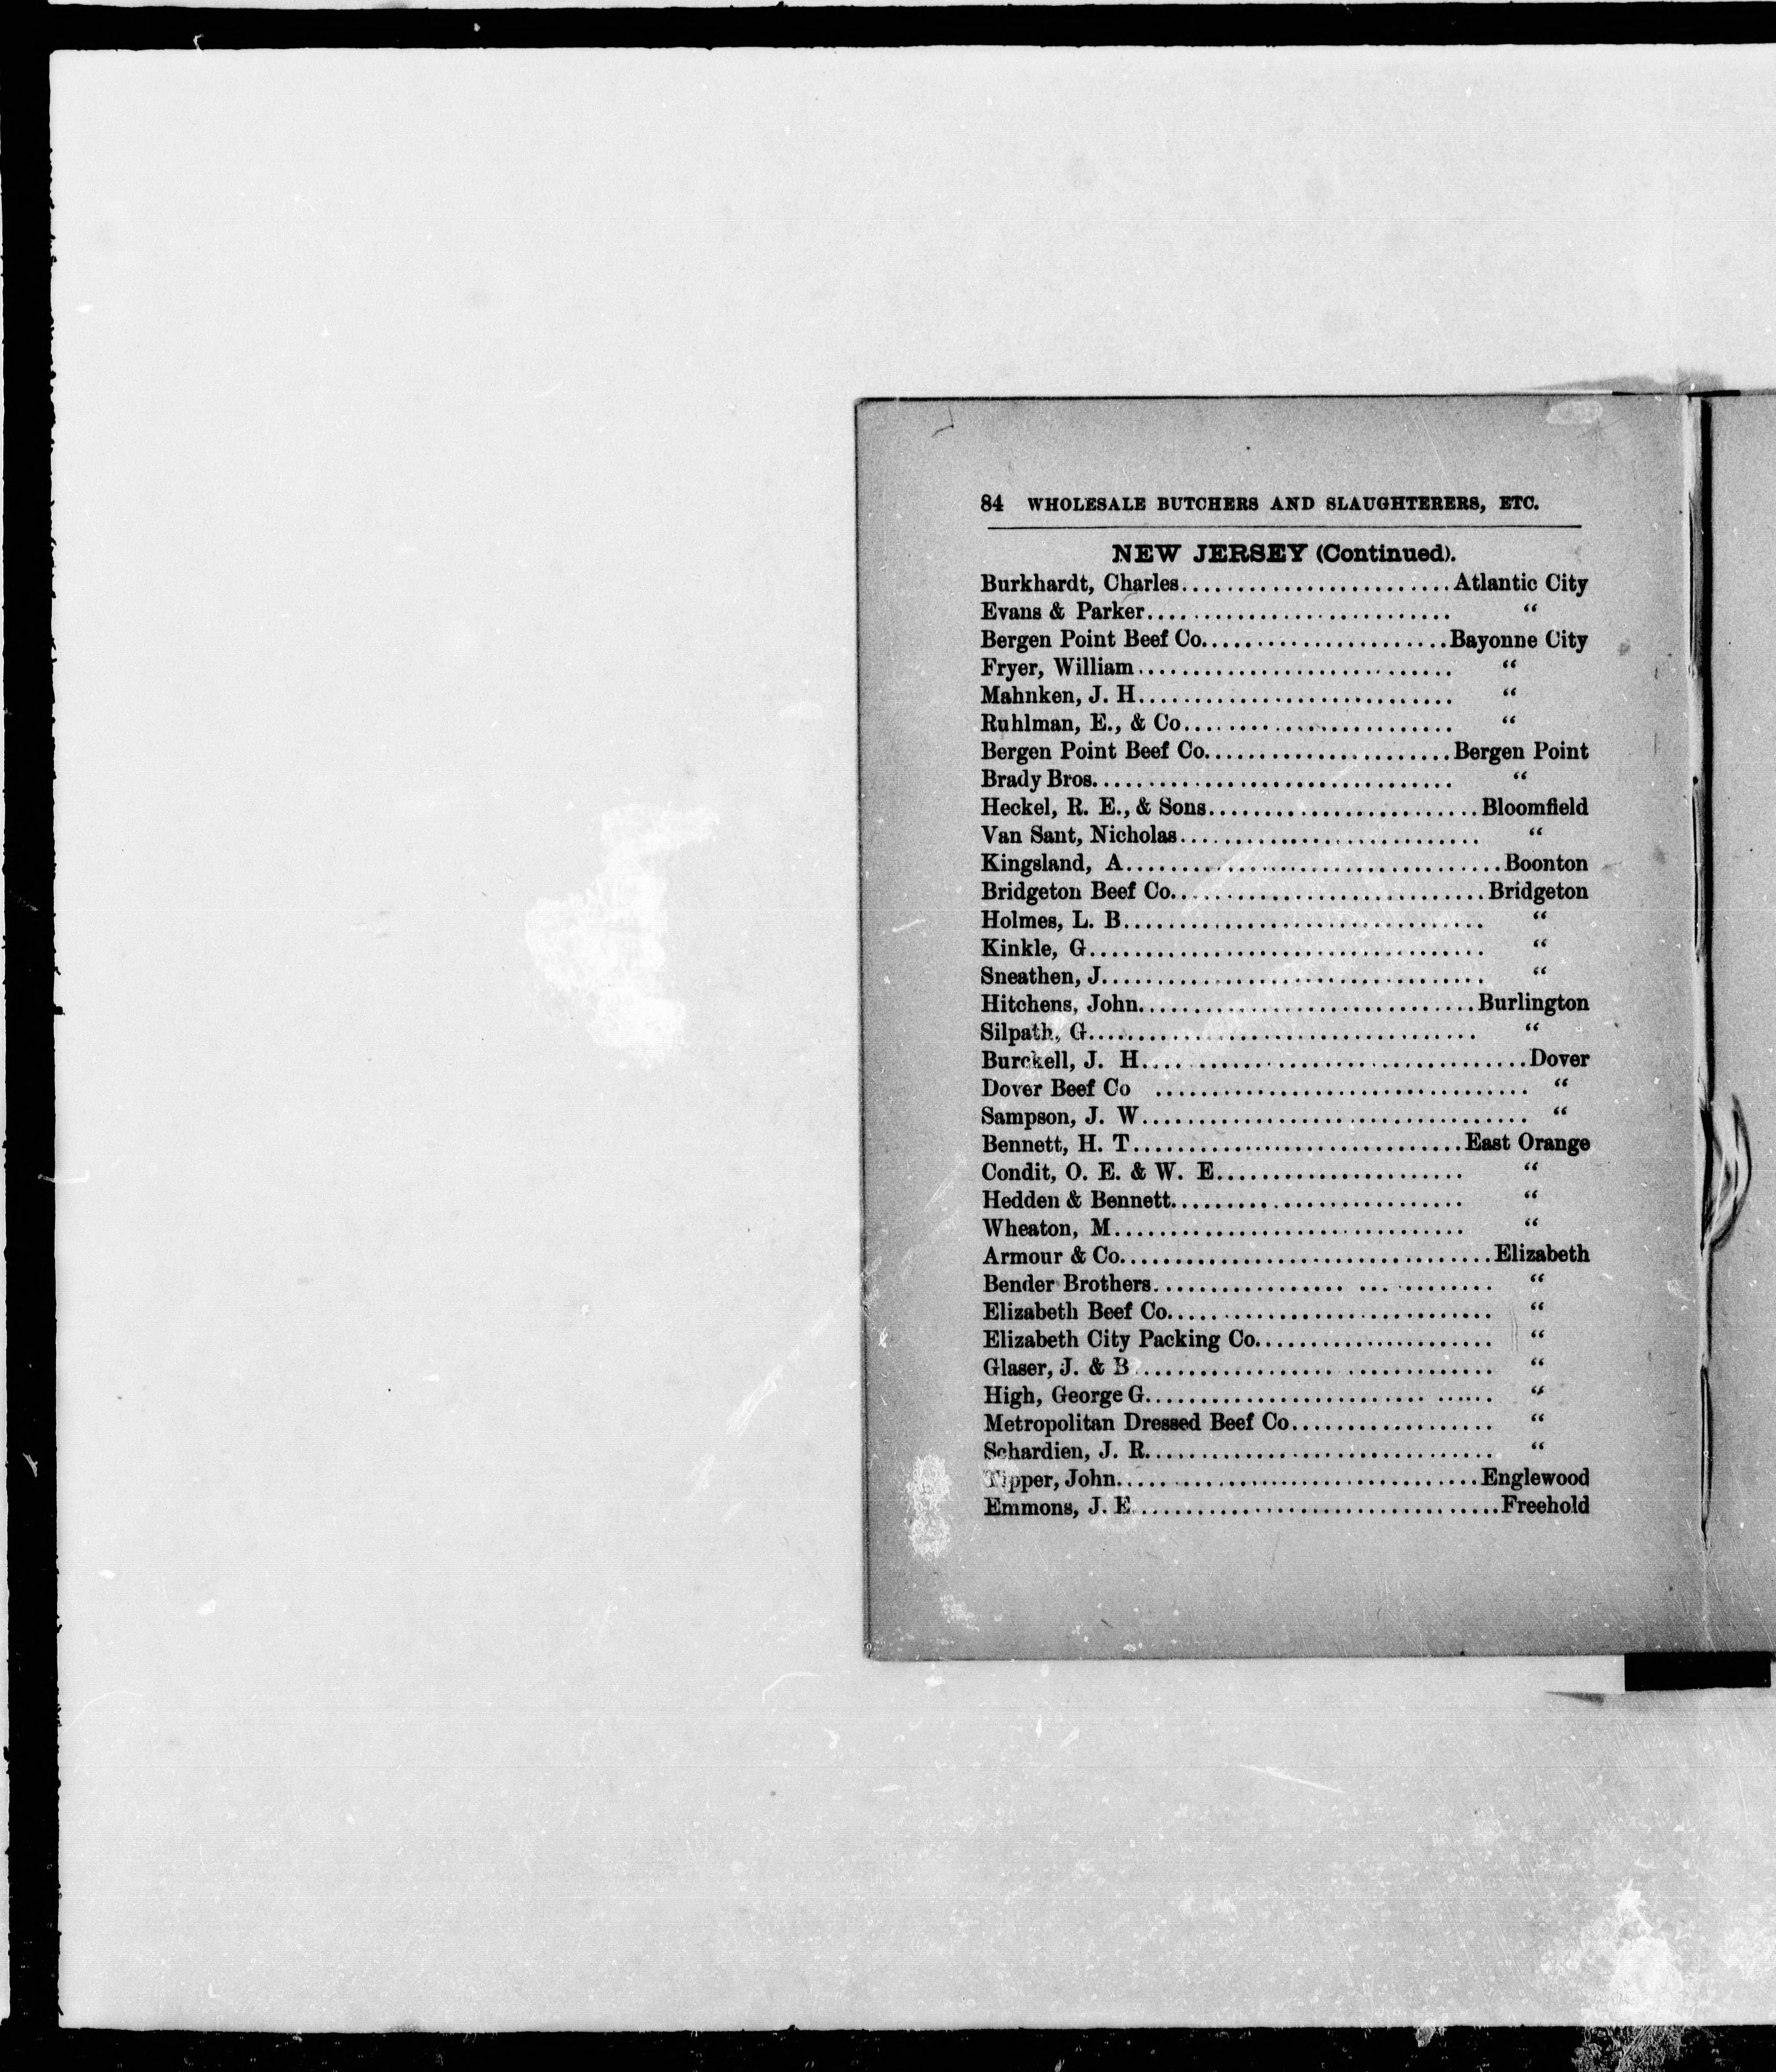 84 WHOLESALE BUTCHERS AND SLAUGHTERERS, ETC.
NEW JERSEY (Continued).
Burkhardt, Charles........................Atlantic City
Evans & Parker........................... “
Bergen Point Beef Co......................Bayonne City
Fryer, William............................ “
Mahnken, J. H............................ “
Ruhlman, E., & Co........................ “
Bergen Point Beef Co......................Bergen Point
Brady Bros................................ “
Heckel, R. E., & Sons........................Bloomfield
Van Sant, Nicholas.......................... “
Kingsland, A..................................Boonton
Bridgeton Beef Co............................Bridgeton
Holmes, L. B................................ “
Kinkle, G................................... “
Sneathen, J.................................. “
Hitchens, John..............................Burlington
Silpath, G................................... “
Burckell, J. H..................................Dover
Dover Beef Co .................................. “
Sampson, J. W................................... “
Bennett, H. T..............................East Orange
Condit, O. E. & W. E...................... “
Hedden & Bennett.......................... “
Wheaton, M............................... “
Armour & Co.................................Elizabeth
Bender Brothers.............................. “
Elizabeth Beef Co............................. “
Elizabeth City Packing Co..................... “
Glaser, J. & B................................ “
High, George G............................... “
Metropolitan Dressed Beef Co.................. “
Schardien, J. R............................... “
Tipper, John................................Englewood
Emmons, J. E................................Freehold